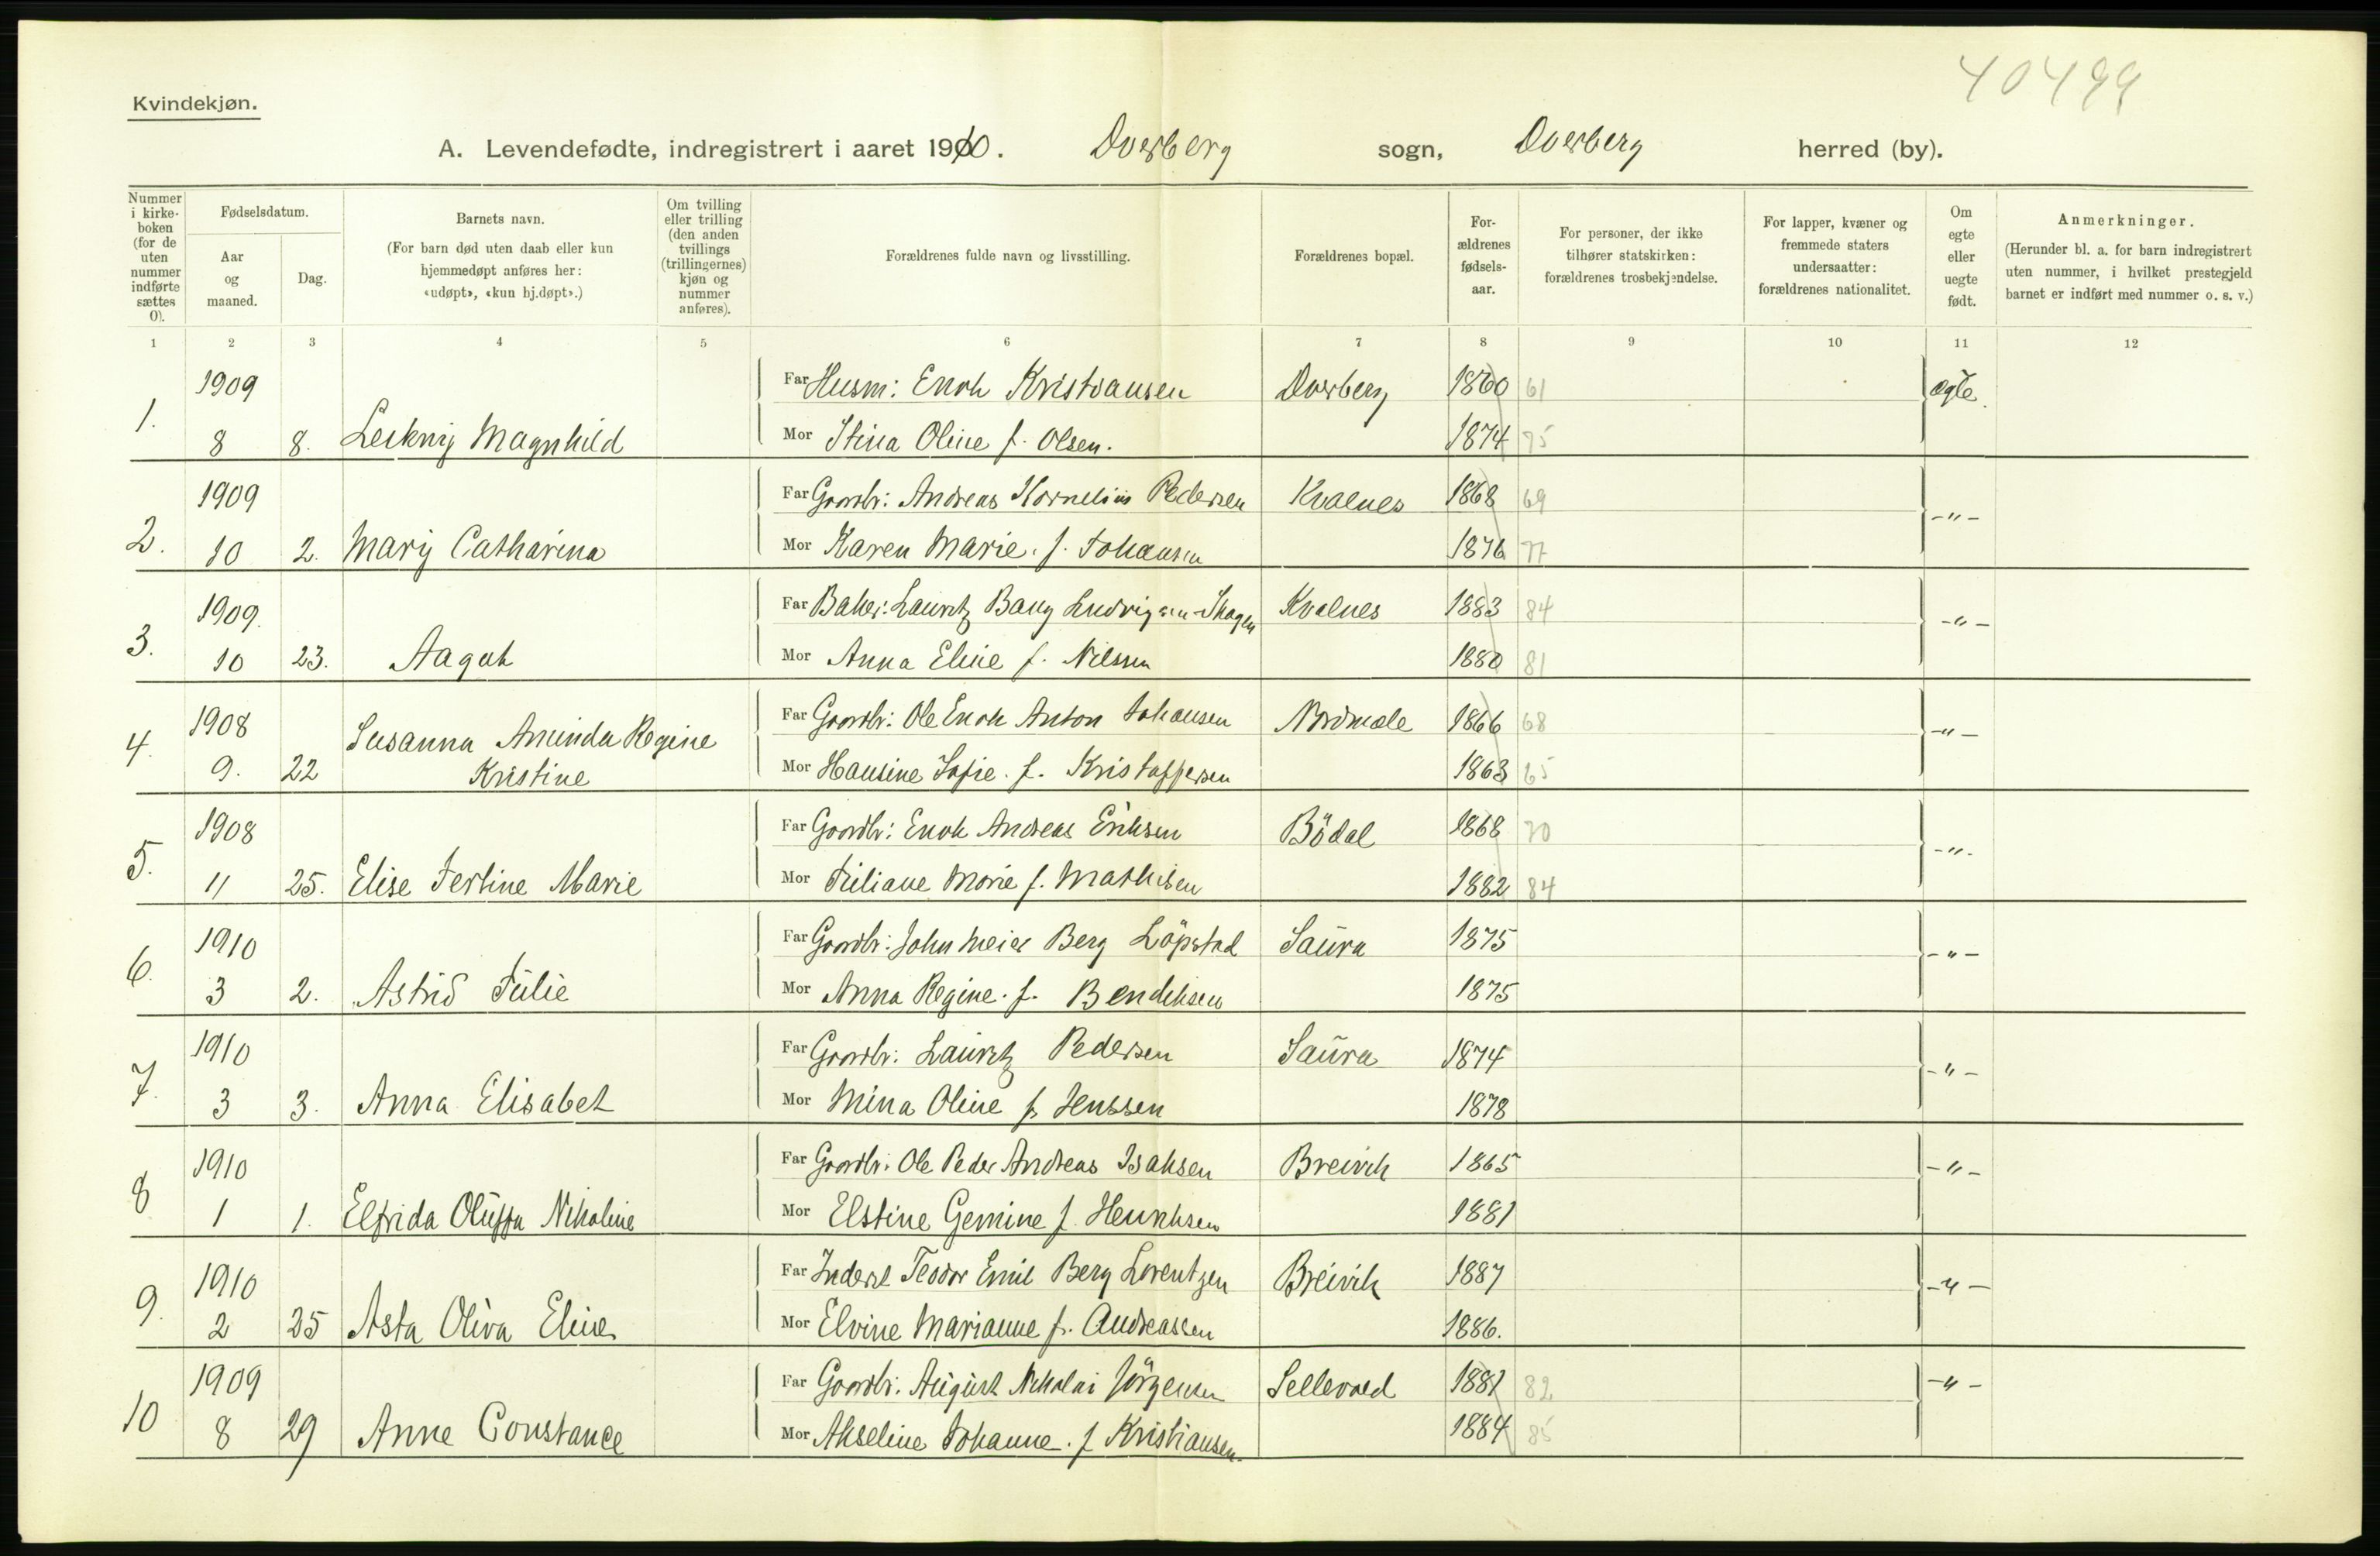 40499
Kvindekjøn.
A. Levendefødte, indregistrert i aaret 1910. Dverberg sogn, Dverberg herred (by).
Nummer i kirkeboken (for de uten nummer indførte sættes 0).
Fødselsdatum.
Aar og maaned.
Dag.
Barnets navn.
(For barn død uten daab eller kun hjemmedøpt anføres her: «udøpt», «kun hj.døpt».)
Om tvilling eller trilling (den anden tvillings (trillingernes) kjøn og nummer anføres).
Forældrenes fulde navn og livsstilling.
Forældrenes bopæl.
Forældrenes fødselsaar.
For personer, der ikke tilhører statskirken: forældrenes trosbekjendelse.
For lapper, kvæner og fremmede staters undersaatter: forældrenes nationalitet.
Om egte eller uegte født.
Anmerkninger.
(Herunder bl. a. for barn indregistrert uten nummer, i hvilket prestegjeld barnet er indført med nummer o. s. v.)
1 2 3 4 5 6 7 8 9 10 11 12
1909 Far Husm: Enok Kristiansen Dverberg 1860 61 ægte
1. 8 8. Magnhild Mor Stina Oline f. Olsen. 1874 75
1909 Far Gaardbr: Andreas Kornelius Pedersen Kvalnes 1868 69 -"-
2. 10 2. Mary Catharina Mor Karen Marie. f. Johansen 1876 77
1909. Far Baker: Lauritz Bang Ludvigsen-Skagen Kvalnes 1883 84 -"-
3. 10 23. Aagot Mor Anna Eline f. Nilssen 1880 81
1908 Far Gaardbr: Ole Enok Anton Johansen Nordmele 1866 68 -"-
4. 9. 22 Susanna Aminda Regine Kristine Mor Hansine Sofie. f. Kristoffersen 1863 65
1908 Far Gaardbr: Enok Andreas Eriksen Bödal 1868 70 -"-
5. 11 25. Elise Jertine Marie Mor Juliane Marie f. Mathisen 1882 84
1910 Far Gaardbr: John Meier Berg Löpstad Saura 1875 -"-
6. 3 2. Astrid Julie Mor Anna Regine. f. Bendiksen 1875
1910 Far Gaardbr: Lauritz Pedersen Saura 1874 -"-
7. 3 3. Anna Elisabet Mor Mina Oline f. Jenssen 1878
1910 Far Gaardbr: Ole Peder Andreas Isaksen Breivik 1865 -"-
8 1 1. Elfrida Oluffa Nikoline Mor Elstine Gemine f. Henriksen 1881
1910 Far Inderst Teodor Emil Berg Lorentzen Breivik 1887 -"-
9. 2 25 Asta Oliva Eline Mor Elvine Marianne f. Andreassen 1886.
1909 Far Gaardbr: August Nikolai Jörgensen Sellevold 1881 82 -"-
10 8 29 Anne Constance Mor Akseline Johanne. f Kristiansen. 1884 85